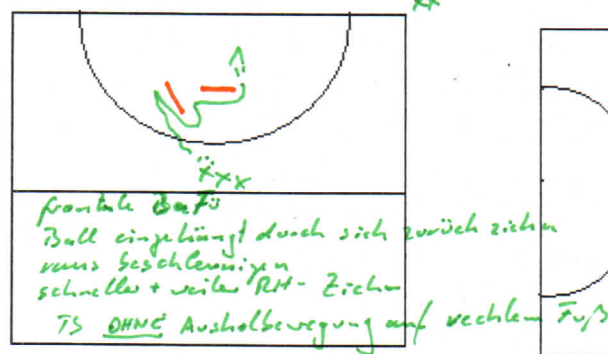 xx
xxx
frontale BaFü
Ball eingehängt durch sich zurück ziehen
raus beschleunigen
schneller + weiter RH- Ziehen
TS OHNE Ausholbewegung auf rechtem Fuß